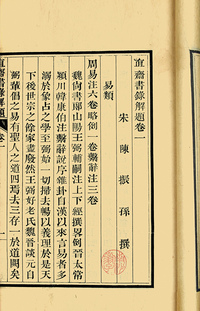 直齋書錄解題卷一
宋 陳振孫 撰
易類
周易注六卷略例一卷繫辭注三卷
魏尚書郎山陽王弼輔嗣注上下經撰略例晉太常
潁川韓康伯注繫辭說序雜卦自漢以來言易者多
溺於象占之學至弼始一切掃去暢以義理於是天
下後世宗之餘家盡廢然王弼好老氏魏晉談元自
弼輩倡之易有聖人之道四焉去三存一於道闕矣
直齋書錄解題
卷一
一